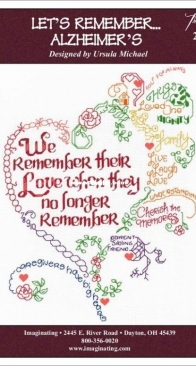 LET'S REMEMBER...
ALZHEIMER'S
Designed by Ursula Michael
We
Remember their
Love when they
no longer
Remember
Loved One
DIGNITY
family
LIVE
LAUGH
LOVE
Cherish the
memories
FRIEND
caregivers have big
Imaginating • 2445 E. River Road • Dayton, OH 45439
800-356-0020
www.imaginating.com